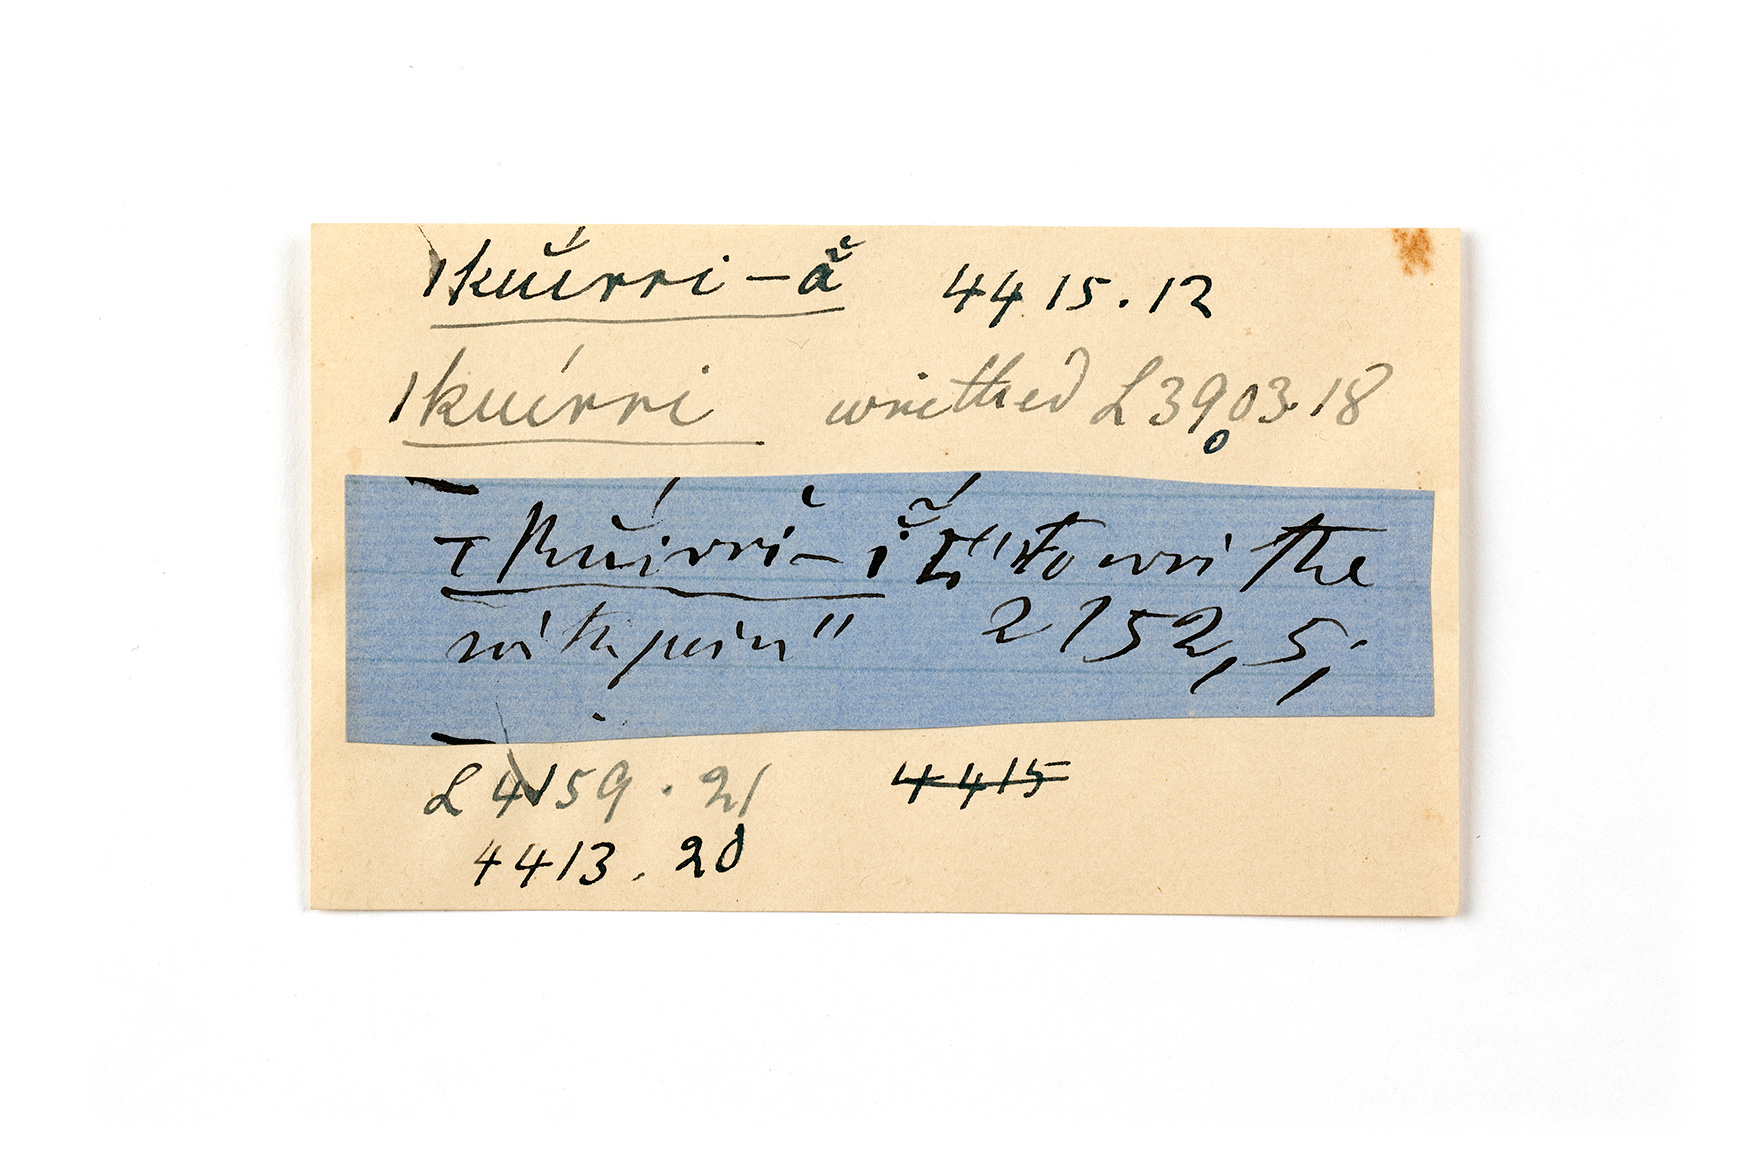 ǀkŭ́ırri-ã̆ 4415.12
ǀkuı́rri writhed L 3903.18
ǀkŭı́rri-ĭ "to writhe
with pain" 2152, 5,
L 4159.21 4415
4413.20